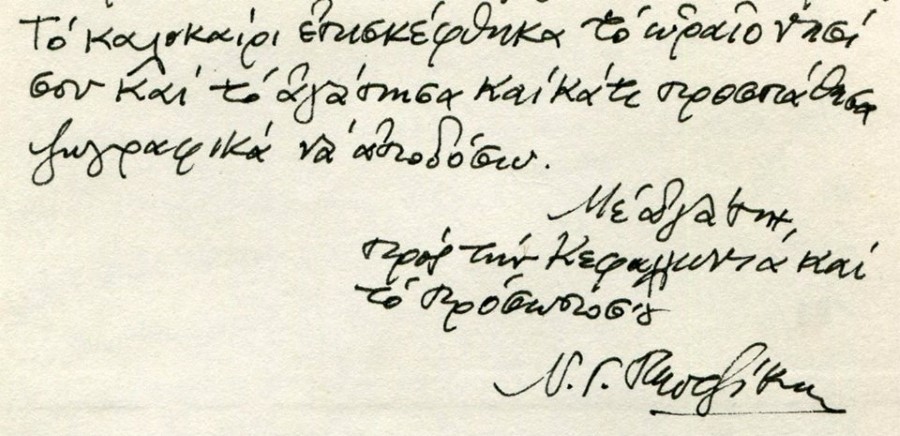 Τό καλοκαίρι ἐπισκέφθηκα τό ὡραῖο νησί
σου καί τό ἀγάπησα καί κάτι προσπάθησα
ζωγραφικά νά ἀποδόσω.
Μέ ἀγάπη,
πρός τήν Κεφαλλωνιά καί
τό πρόσωπό σου
Ν. Γ. Πεντζίκης